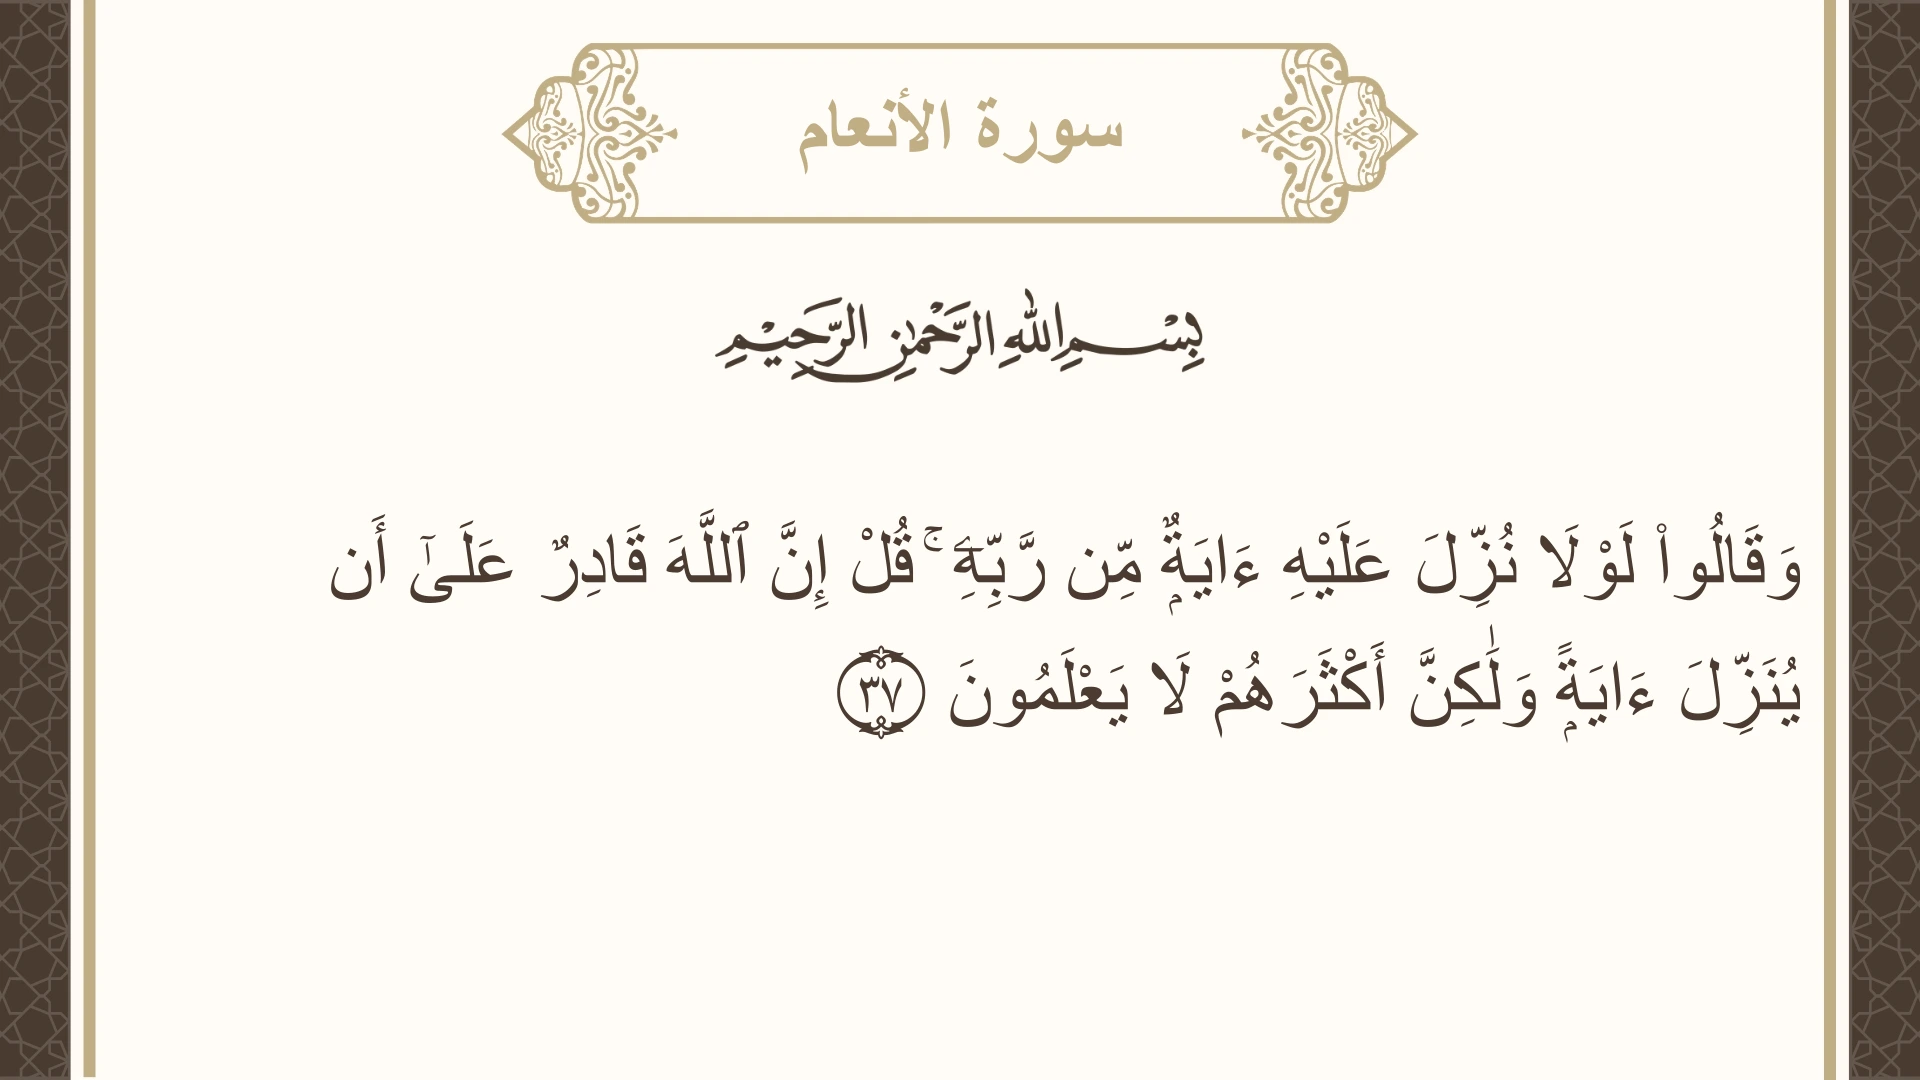 سورة الأنعام
بِسْمِ اللهِ الرَّحْمٰنِ الرَّحِيْمِ
وَقَالُوا۟ لَوْلَا نُزِّلَ عَلَيْهِ ءَايَةٌۭ مِّن رَّبِّهِۦ ۚ قُلْ إِنَّ ٱللَّهَ قَادِرٌ عَلَىٰٓ أَن
يُنَزِّلَ ءَايَةًۭ وَلَٰكِنَّ أَكْثَرَهُمْ لَا يَعْلَمُونَ ٣٧